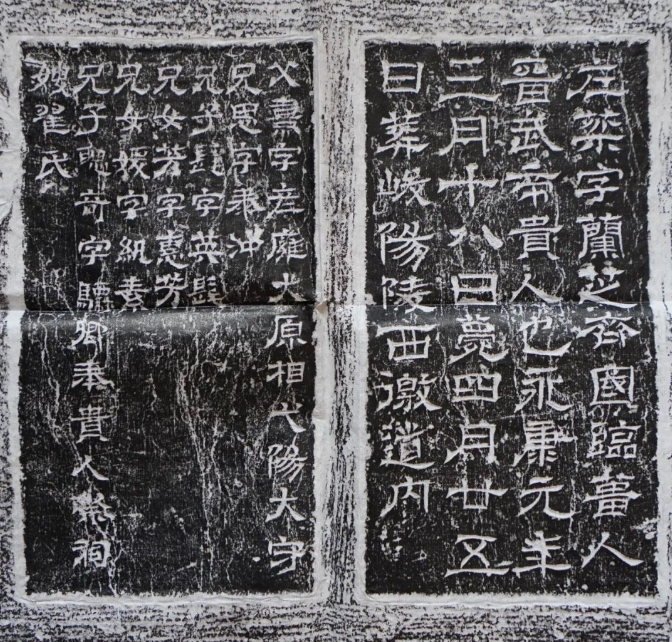 左棻字蘭芝齊國臨菑人
晉武帝貴人也永康元年
三月十八日薨四月廿五
日葬峻陽陵西徼道內
父熹字彥雍大原相弋陽大守
兄思字泰沖
兄子髦字英髦
兄女芳字惠芳
兄女媛字紈素
兄子聰奇字驃卿奉貴人祭祠
嫂翟氏